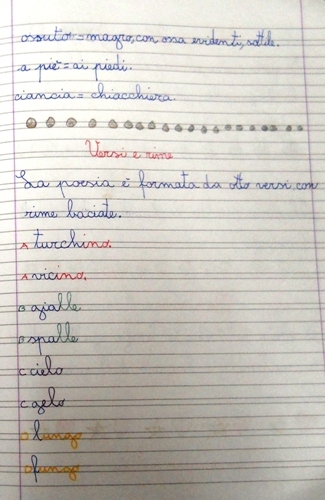 ossuto = magro, con ossa evidenti, sottile.
a piè = ai piedi.
ciancia = chiacchiera.
Versi e rime
La poesia è formata da otto versi con
rime baciate.
A turchino.
A vicino.
B gialle
B spalle
C cielo
C gelo
D lungo
D fungo